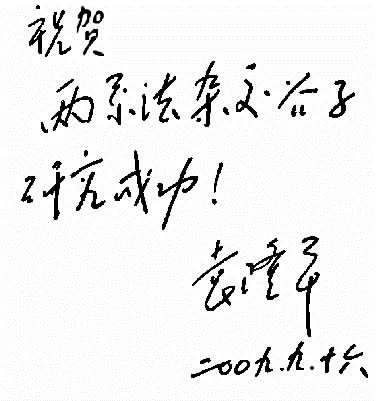 祝贺
两系法杂交谷子
研究成功!
袁隆平
二00九.九.十六